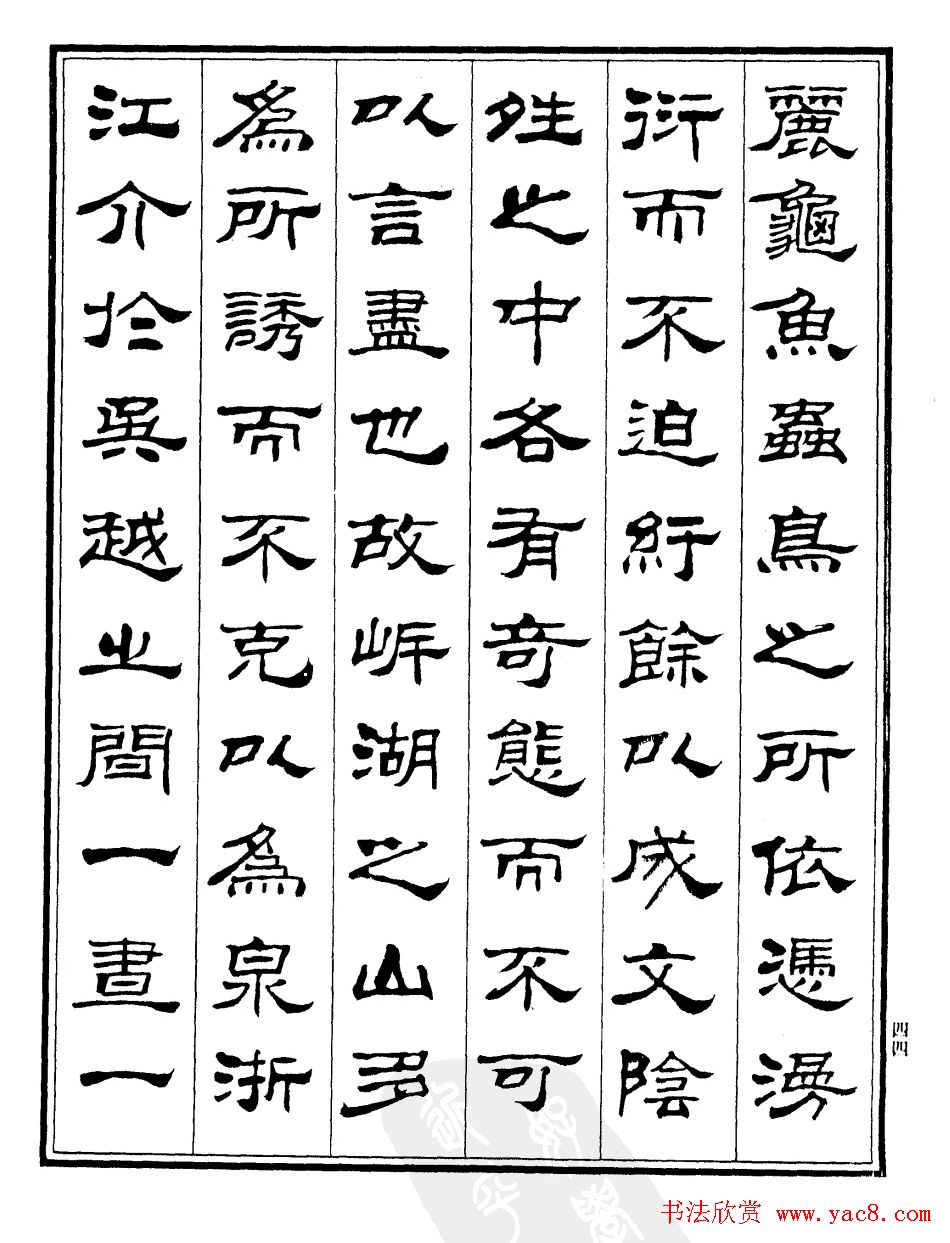 麗龜魚蟲鳥之所依憑漫
衍而不迫紆餘以成文陰
夝之中各有奇態而不可
以言盡也故岍湖之山多
為所誘而不克以為泉浙
江介於吳越之間一晝一
四四
书法欣赏 www.yac8.com